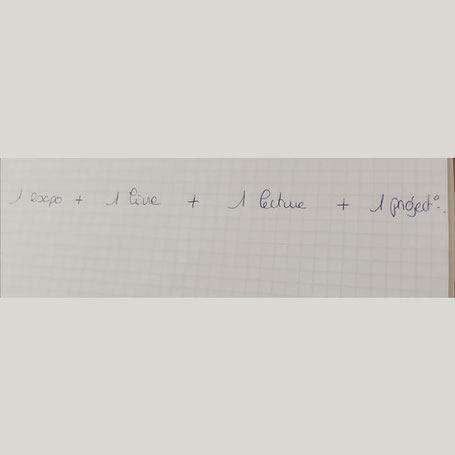 1 expo + 1 livre + 1 lecture + 1 project°.